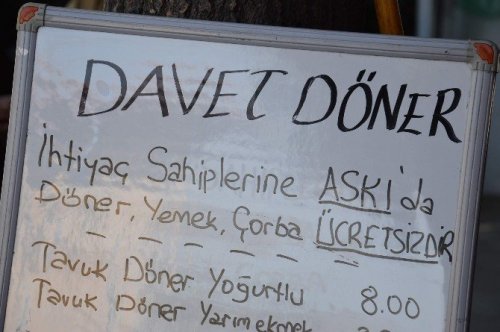 DAVET DÖNER
İhtiyaç Sahiplerine ASKI'da
Döner, Yemek, Çorba ÜCRETSİZDİR
Tavuk Döner Yoğurtlu 8.00
Tavuk Döner Yarım ekmek